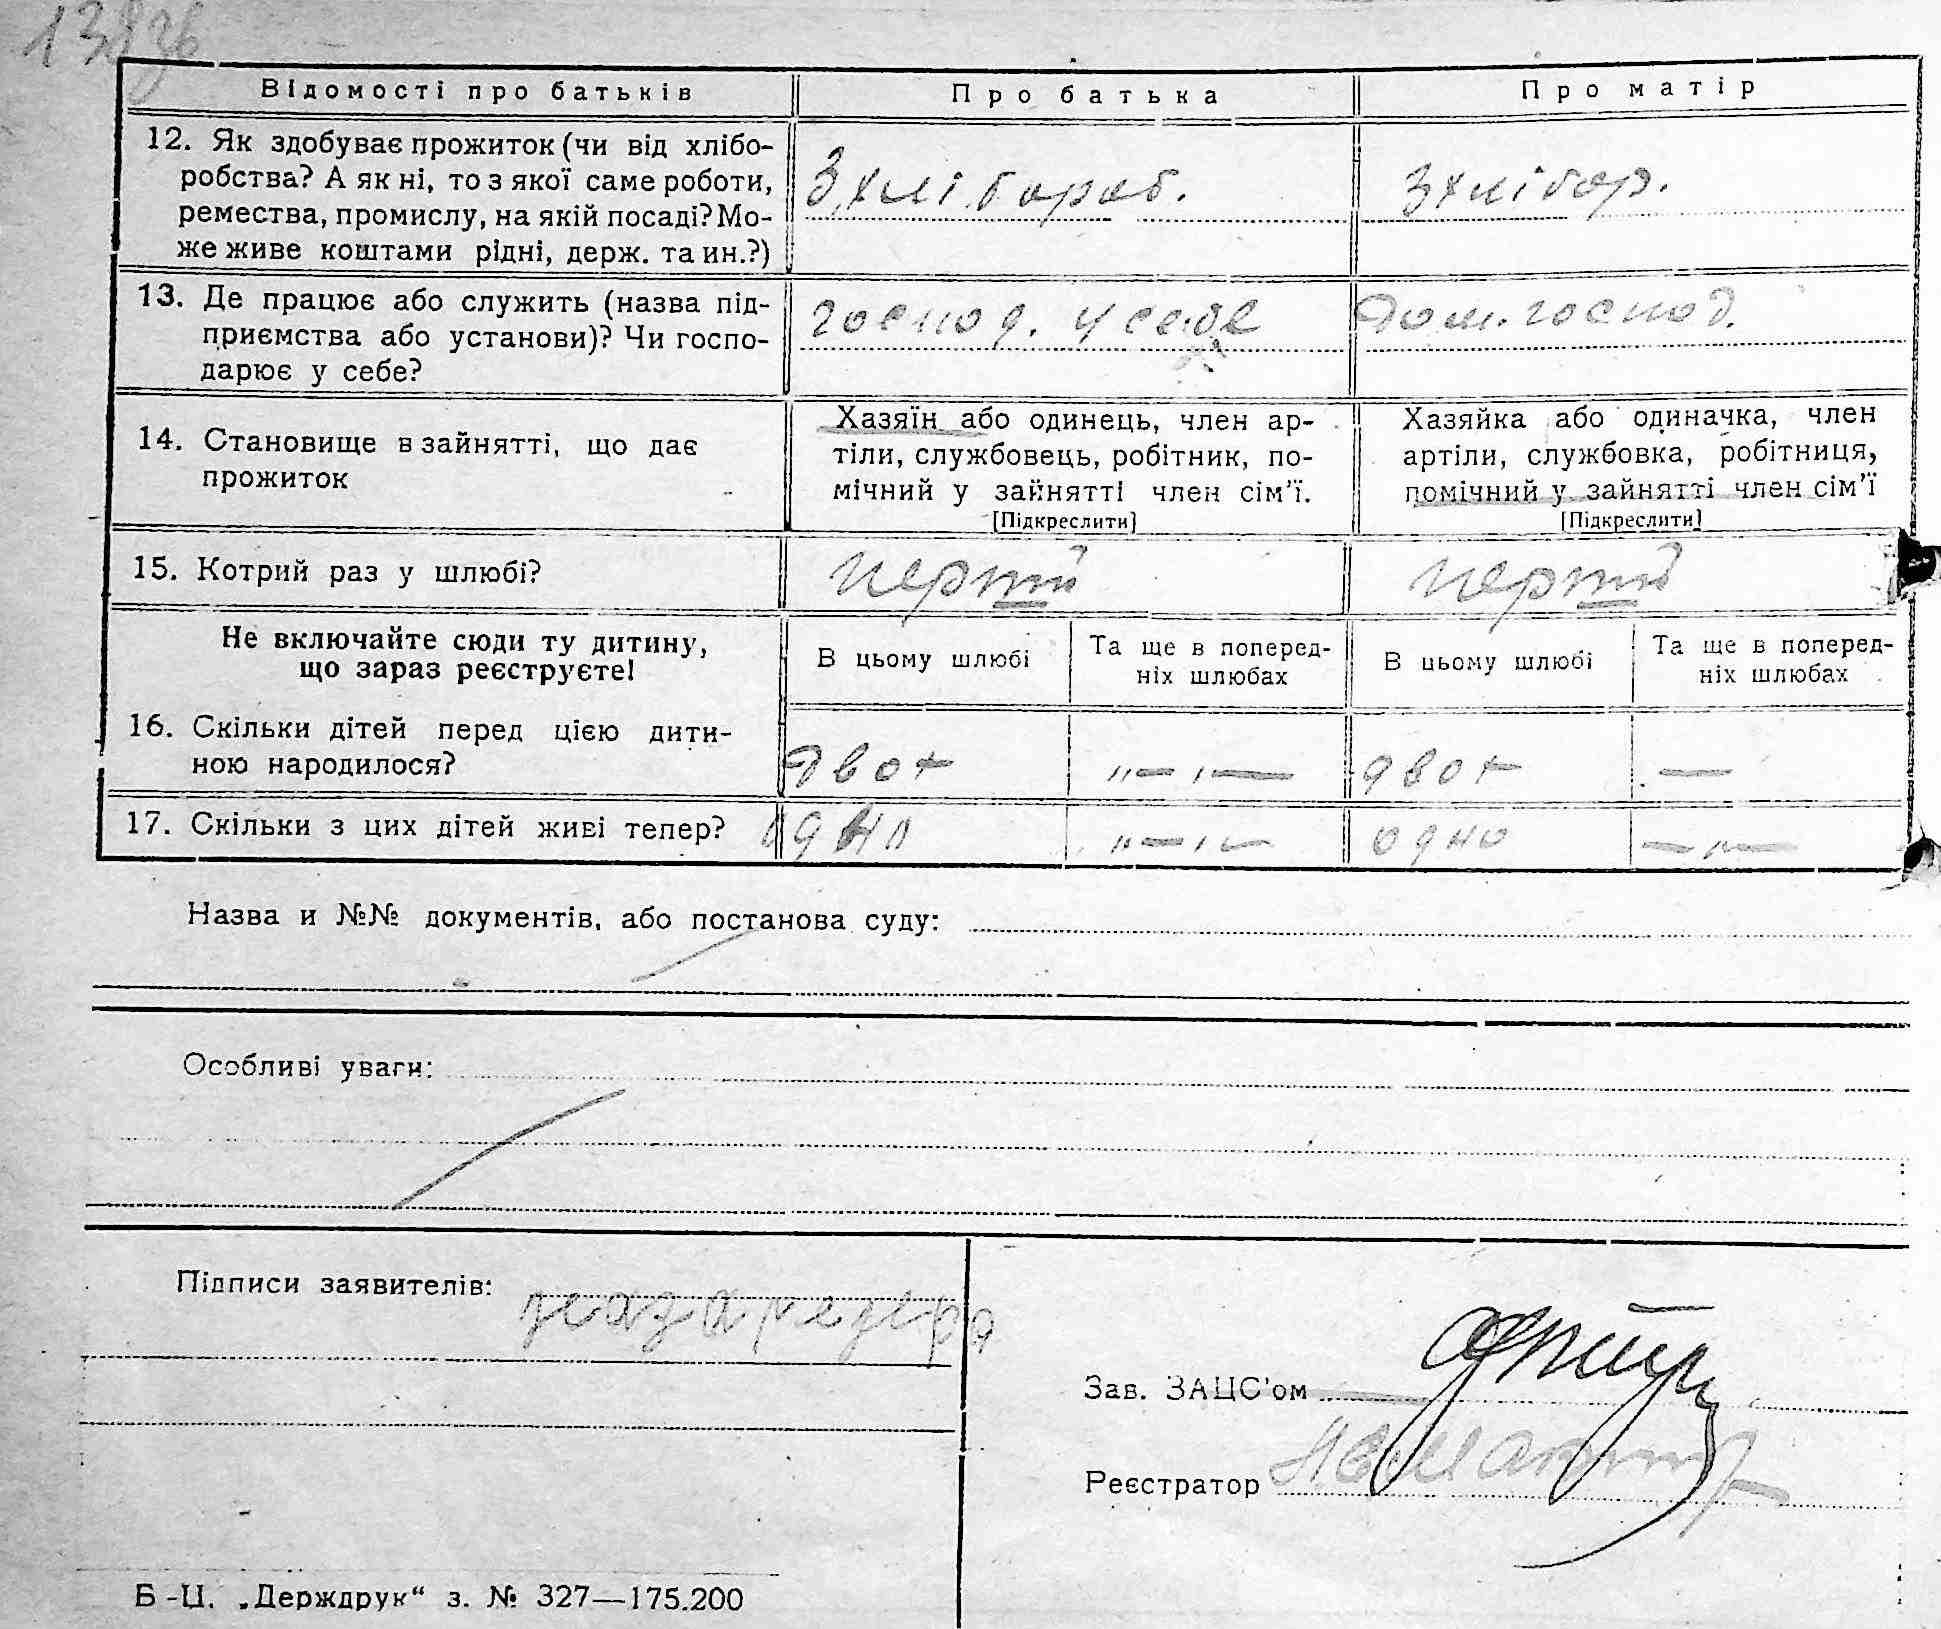 Відомості про батьків Про батька Про матір
12. Як здобуває прожиток (чи від хлібо-
робства? А як ні, то з якої саме роботи,
ремества, промислу, на якій посаді? Мо-
же живе коштами рідні, держ. та ин.?)
З хлібороб. З хлібор.
13. Де працює або служить (назва під-
приємства або установи)? Чи госпо-
дарює у себе?
господ. у себе Дом. господ.
14. Становище в зайнятті, що дає
прожиток
Хазяїн або одинець, член ар-
тіли, службовець, робітник, по-
мічний у зайнятті член сім'ї.
[Підкреслити]
Хазяйка або одиначка, член
артіли, службовка, робітниця,
помічний у зайнятті член сім'ї
[Підкреслити]
15. Котрий раз у шлюбі? перший перший
Не включайте сюди ту дитину,
що зараз реєструєте!
В цьому шлюбі
Та ще в поперед-
ніх шлюбах
В цьому шлюбі
Та ще в поперед-
ніх шлюбах
16. Скільки дітей перед цією дити-
ною народилося?
двох „— „— двох —
17. Скільки з цих дітей живі тепер? одно „— „— одно — „—
Назва и №№ документів, або постанова суду:
Особливі уваги:
Підписи заявителів:
Зав. ЗАЦС'ом
Реєстратор
Б-Ц. „Держдрук“ з. № 327—175.200